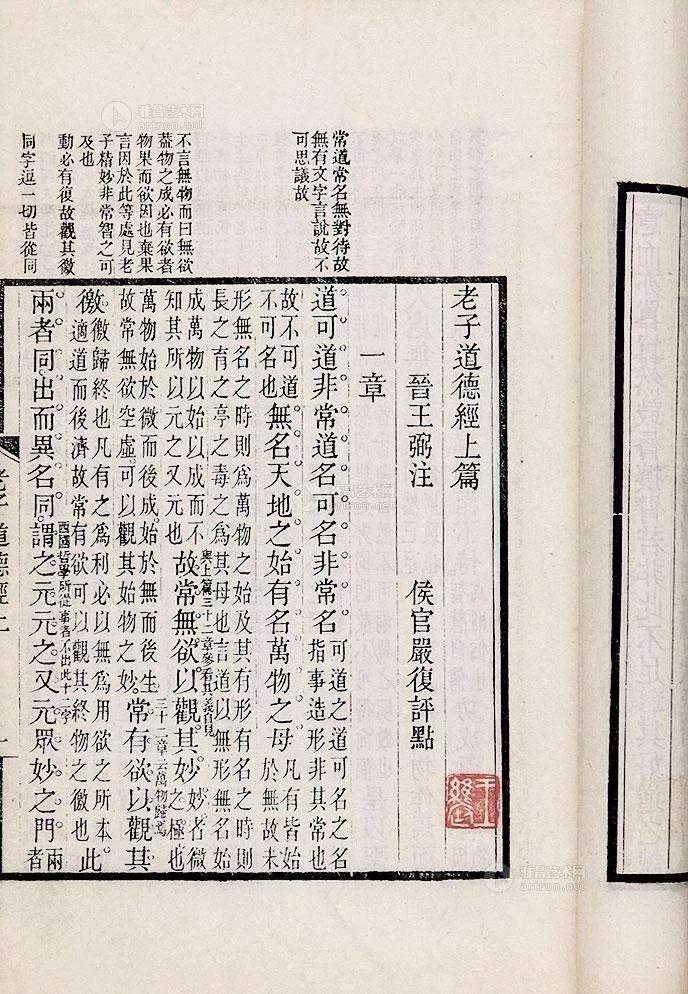 常道常名無對待故
無有文字言說故不
可思議故
不言無物而曰無欲
蓋物之成必有欲者
物果而欲因也棄果
言因於此等處見老
子精妙非常智之可
及也
動必有復故觀其徼
同字逗一切皆從同
老子道德經上篇
晉王弼注 侯官嚴復評點
一章
道可道非常道名可名非常名
可道之道可名之名
指事造形非其常也
故不可道
不可名也
無名天地之始有名萬物之母
凡有皆始
於無故未
形無名之時則為萬物之始及其有形有名之時則
長之育之亭之毒之為其母也言道以無形無名始
成萬物以始以成而不
知其所以元之又元也
與上篇三十二章參看其義自見
故常無欲以觀其妙
妙者微
之極也
萬物始於微而後成始於無而後生
故常無欲空虛可以觀其始物之妙
三十二章云萬物歸焉
常有欲以觀其
徼
徼歸終也凡有之為利必以無為用欲之所本
適道而後濟故常有欲可以觀其終物之徼也
此
西國哲學所從事者不出此十二字
兩者同出而異名同謂之元元之又元眾妙之門
兩
者
老子道德經上
一
雅昌艺术网
artron.net